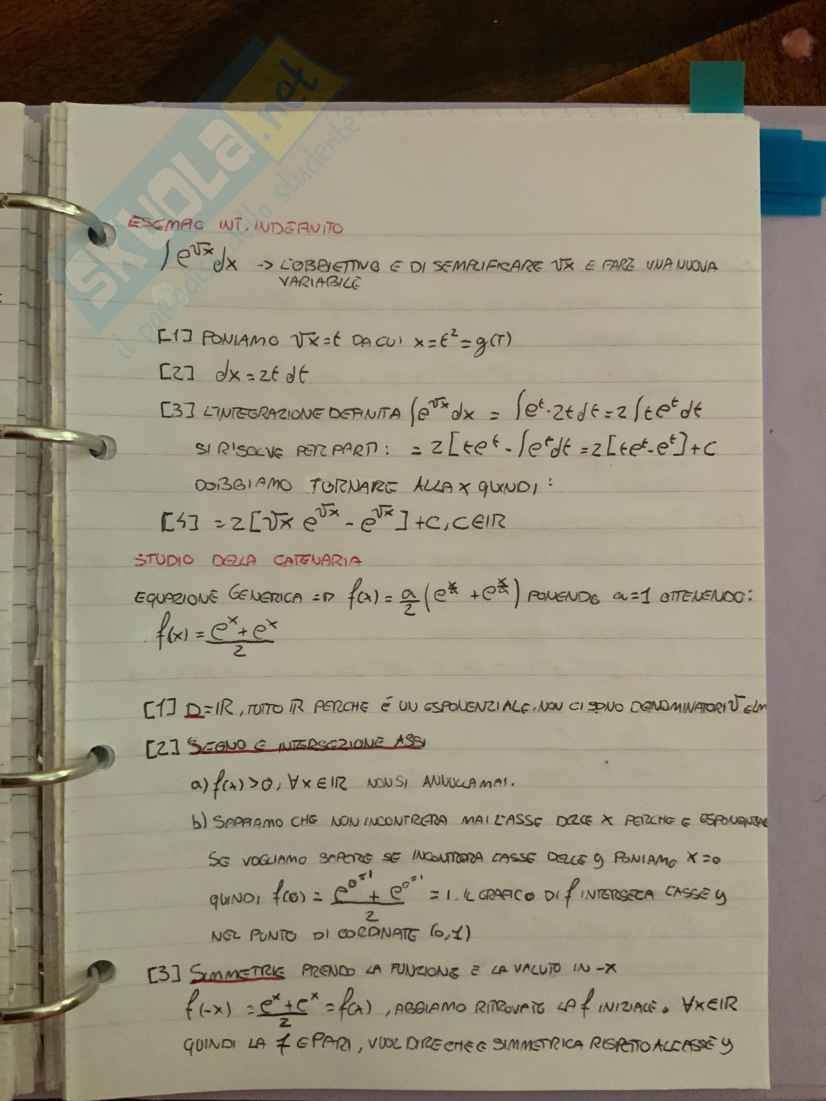 SKUOLA.net
ESEMPIO INT. INDEFINITO
∫e^√x dx → L'OBBIETTIVO E DI SEMPLIFICARE √x E FARE UNA NUOVA
VARIABILE
[1] PONIAMO √x=t DA CUI x=t²=g(T)
[2] dx=2t dt
[3] L'INTEGRAZIONE DEFINITA ∫e^√x dx = ∫e^t·2t dt = 2∫te^t dt
SI RISOLVE PER PARTI: = 2[te^t - ∫e^t dt = 2[te^t-e^t]+C
DOBBIAMO TORNARE ALLA X QUINDI:
[4] = 2[√x e^√x - e^√x]+C, C∈IR
STUDIO DELLA CATENARIA
EQUAZIONE GENERICA => f(x) = a/2 (e^x/a + e^x/a) PONENDO a=1 OTTENENDO:
f(x) = e^x + e^x / 2
[1] D=IR, TUTTO IR PERCHE É UN ESPONENZIALE. NON CI SONO DENOMINATORI √ E LN
[2] SEGNO E INTERSEZIONE ASSI
a) f(x)>0, ∀x∈IR NON SI ANNULLA MAI.
b) SAPPIAMO CHE NON INCONTRERA MAI L'ASSE DELLE X PERCHE E ESPONENZIALE
SE VOGLIAMO SAPERE SE INCONTRERA L'ASSE DELLE y PONIAMO X=0
QUINDI f(0) = e^0=1 + e^0=1 / 2 = 1. IL GRAFICO DI f INTERSECA L'ASSE y
NEL PUNTO DI COORDINATE (0,1)
[3] SIMMETRIE PRENDO LA FUNZIONE E LA VALUTO IN -X
f(-x) = e^x + e^x / 2 = f(x), ABBIAMO RITROVATO LA f INIZIALE. ∀x∈IR
QUINDI LA f E PARI, VUOL DIRE CHE E SIMMETRICA RISPETTO ALL'ASSE y